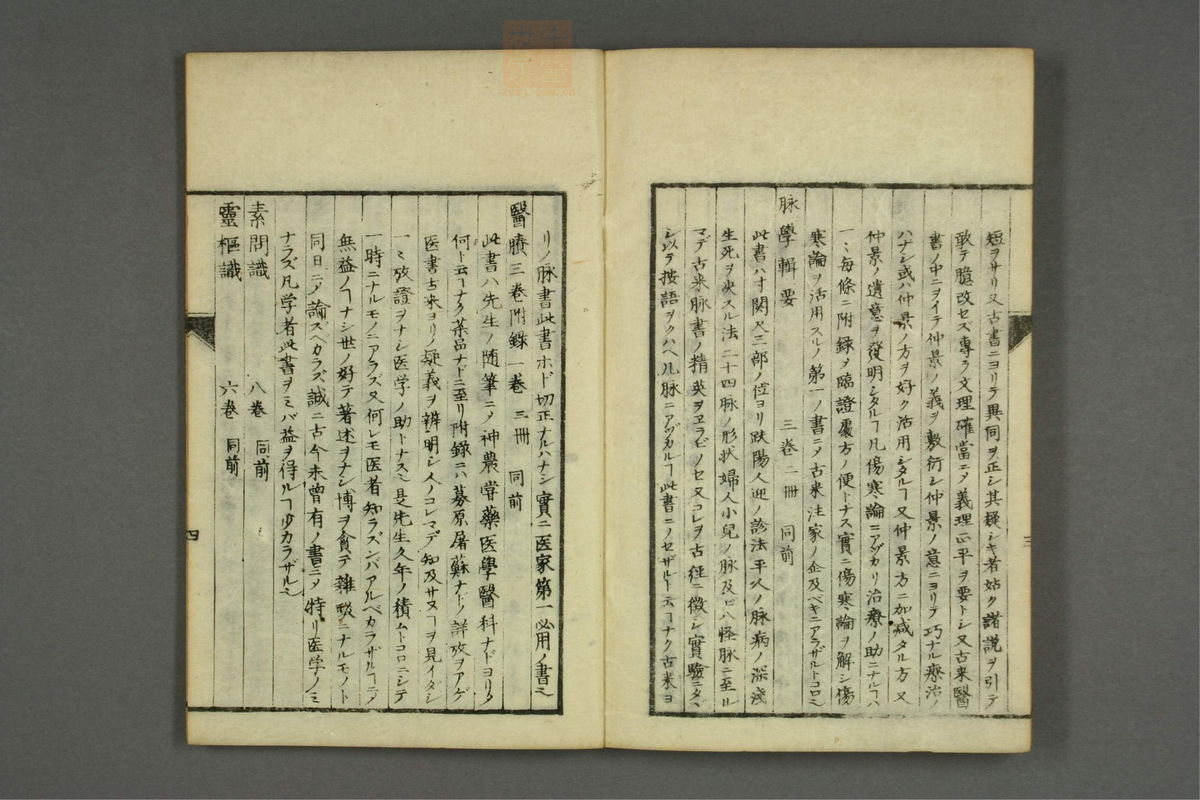 短ヲサリ又古書ニヨリテ異同ヲ正シ其疑シキ者姑ク諸説ヲ引テ
敢テ臆改セズ專ラ文理確當ニノ義理平ヲ要トシ又古来醫
書ノ中ニヲイテ仲景ノ義ヲ敷衍シ仲景ノ意ニヨリテ巧ナル療治ノ
ハナシ或ハ仲景ノ方ヲ好ク活用シタルヿ又仲景方ニ加减タル方又
仲景ノ遺意ヲ發明シタルヿ凡傷寒論ニアヅカリ治療ノ助ニナルヿハ
一〻毎條ニ附録ヲ臨證處方ノ便トナス實ニ傷寒論ヲ解シ傷
寒論ヲ活用スルノ第一ノ書ニメ古来注家ノ企及ベキニアラザルトコロ
脉學輯要 三巻二冊 同前
此書ハ寸関尺三部ノ位ヨリ趺陽人迎ノ診法平人ノ脉病ノ深淺
生死ヲ决スル法二十四脉ノ形状婦人小兒ノ脉及ビ八怪脉ニ至ル
マデ古来脉書ノ精英ヲヱラビノセ又コレヲ古經ニ徴シ實驗ニタ
シ以テ按語ヲクハヘ凡脉ニアヅカルヿ此書ニノセザルト云ヿナク古来ヨ
三
リノ脉書此書ホド切正ナルハナシ實ニ医家第一必用ノ書
醫賸三巻附録一巻 三冊 同前
此書ハ先生ノ随筆ニメ神農甞藥医學醫科ナドヨリ
何ト云ヿナク薬品ナドニ至リ附録ニハ募原屠蘇ナドノ詳攷ヲアゲ
医書古来ヨリノ疑義ヲ辨明シ人ノコレマデ知及サヌヿヲ見イダシ
一〻攷證ヲナシ医学ノ助トナス是先生久年ノ積ムトコロニシテ
一時ニナルモノニアラズ又何レモ医者知ラズンバアルベカラザルヿニメ
無益ノヿナシ世ノ好テ著述ヲナシ博ヲ貪テ雜駁ニナルモノト
同日ニ論ズベカラズ誠ニ古今未曾有ノ書ニメ特リ医学ノミ
ナラズ凡学者此書ヲミバ益ヲ得ルヿ少カラザル
素問識 八巻 同前
靈樞識 六巻 同前
四